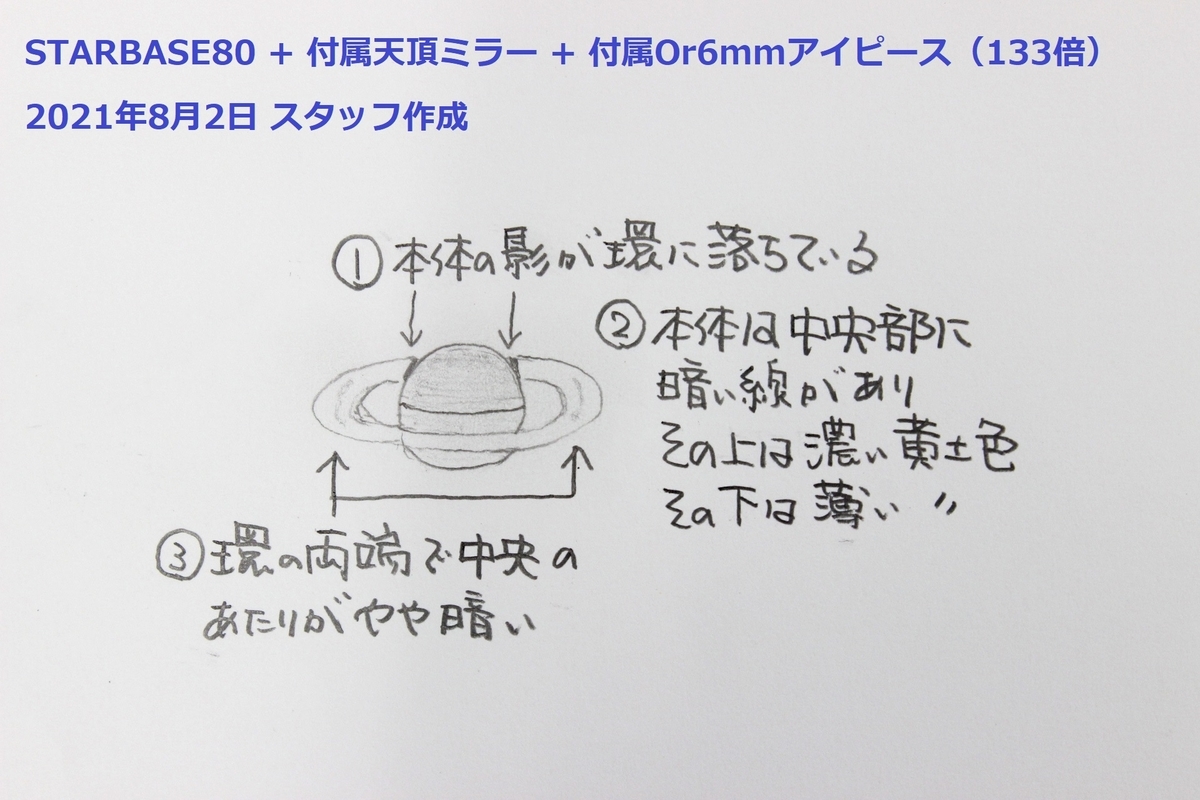 STARBASE80 + 付属天頂ミラー + 付属Or6mmアイピース（133倍）
2021年8月2日 スタッフ作成
①本体の影が環に落ちている
②本体は中央部に
暗い線があり
その上は濃い黄土色
その下は薄い 〃
③環の両端で中央の
あたりがやや暗い